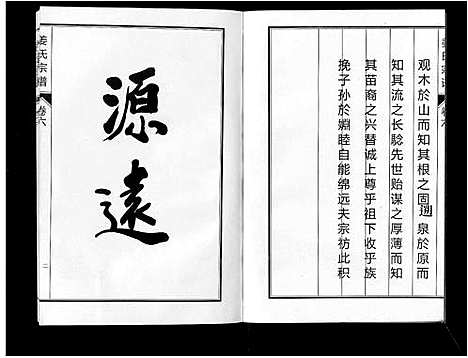 观木於山而知其根之固溯泉於原而
知其流之长谂先世贻谋之厚薄而知
其苗裔之兴替诚上尊乎祖下收乎族
挽子孙於婣睦自能绵远夫宗祊此积
源远
姜氏宗谱
卷六
二